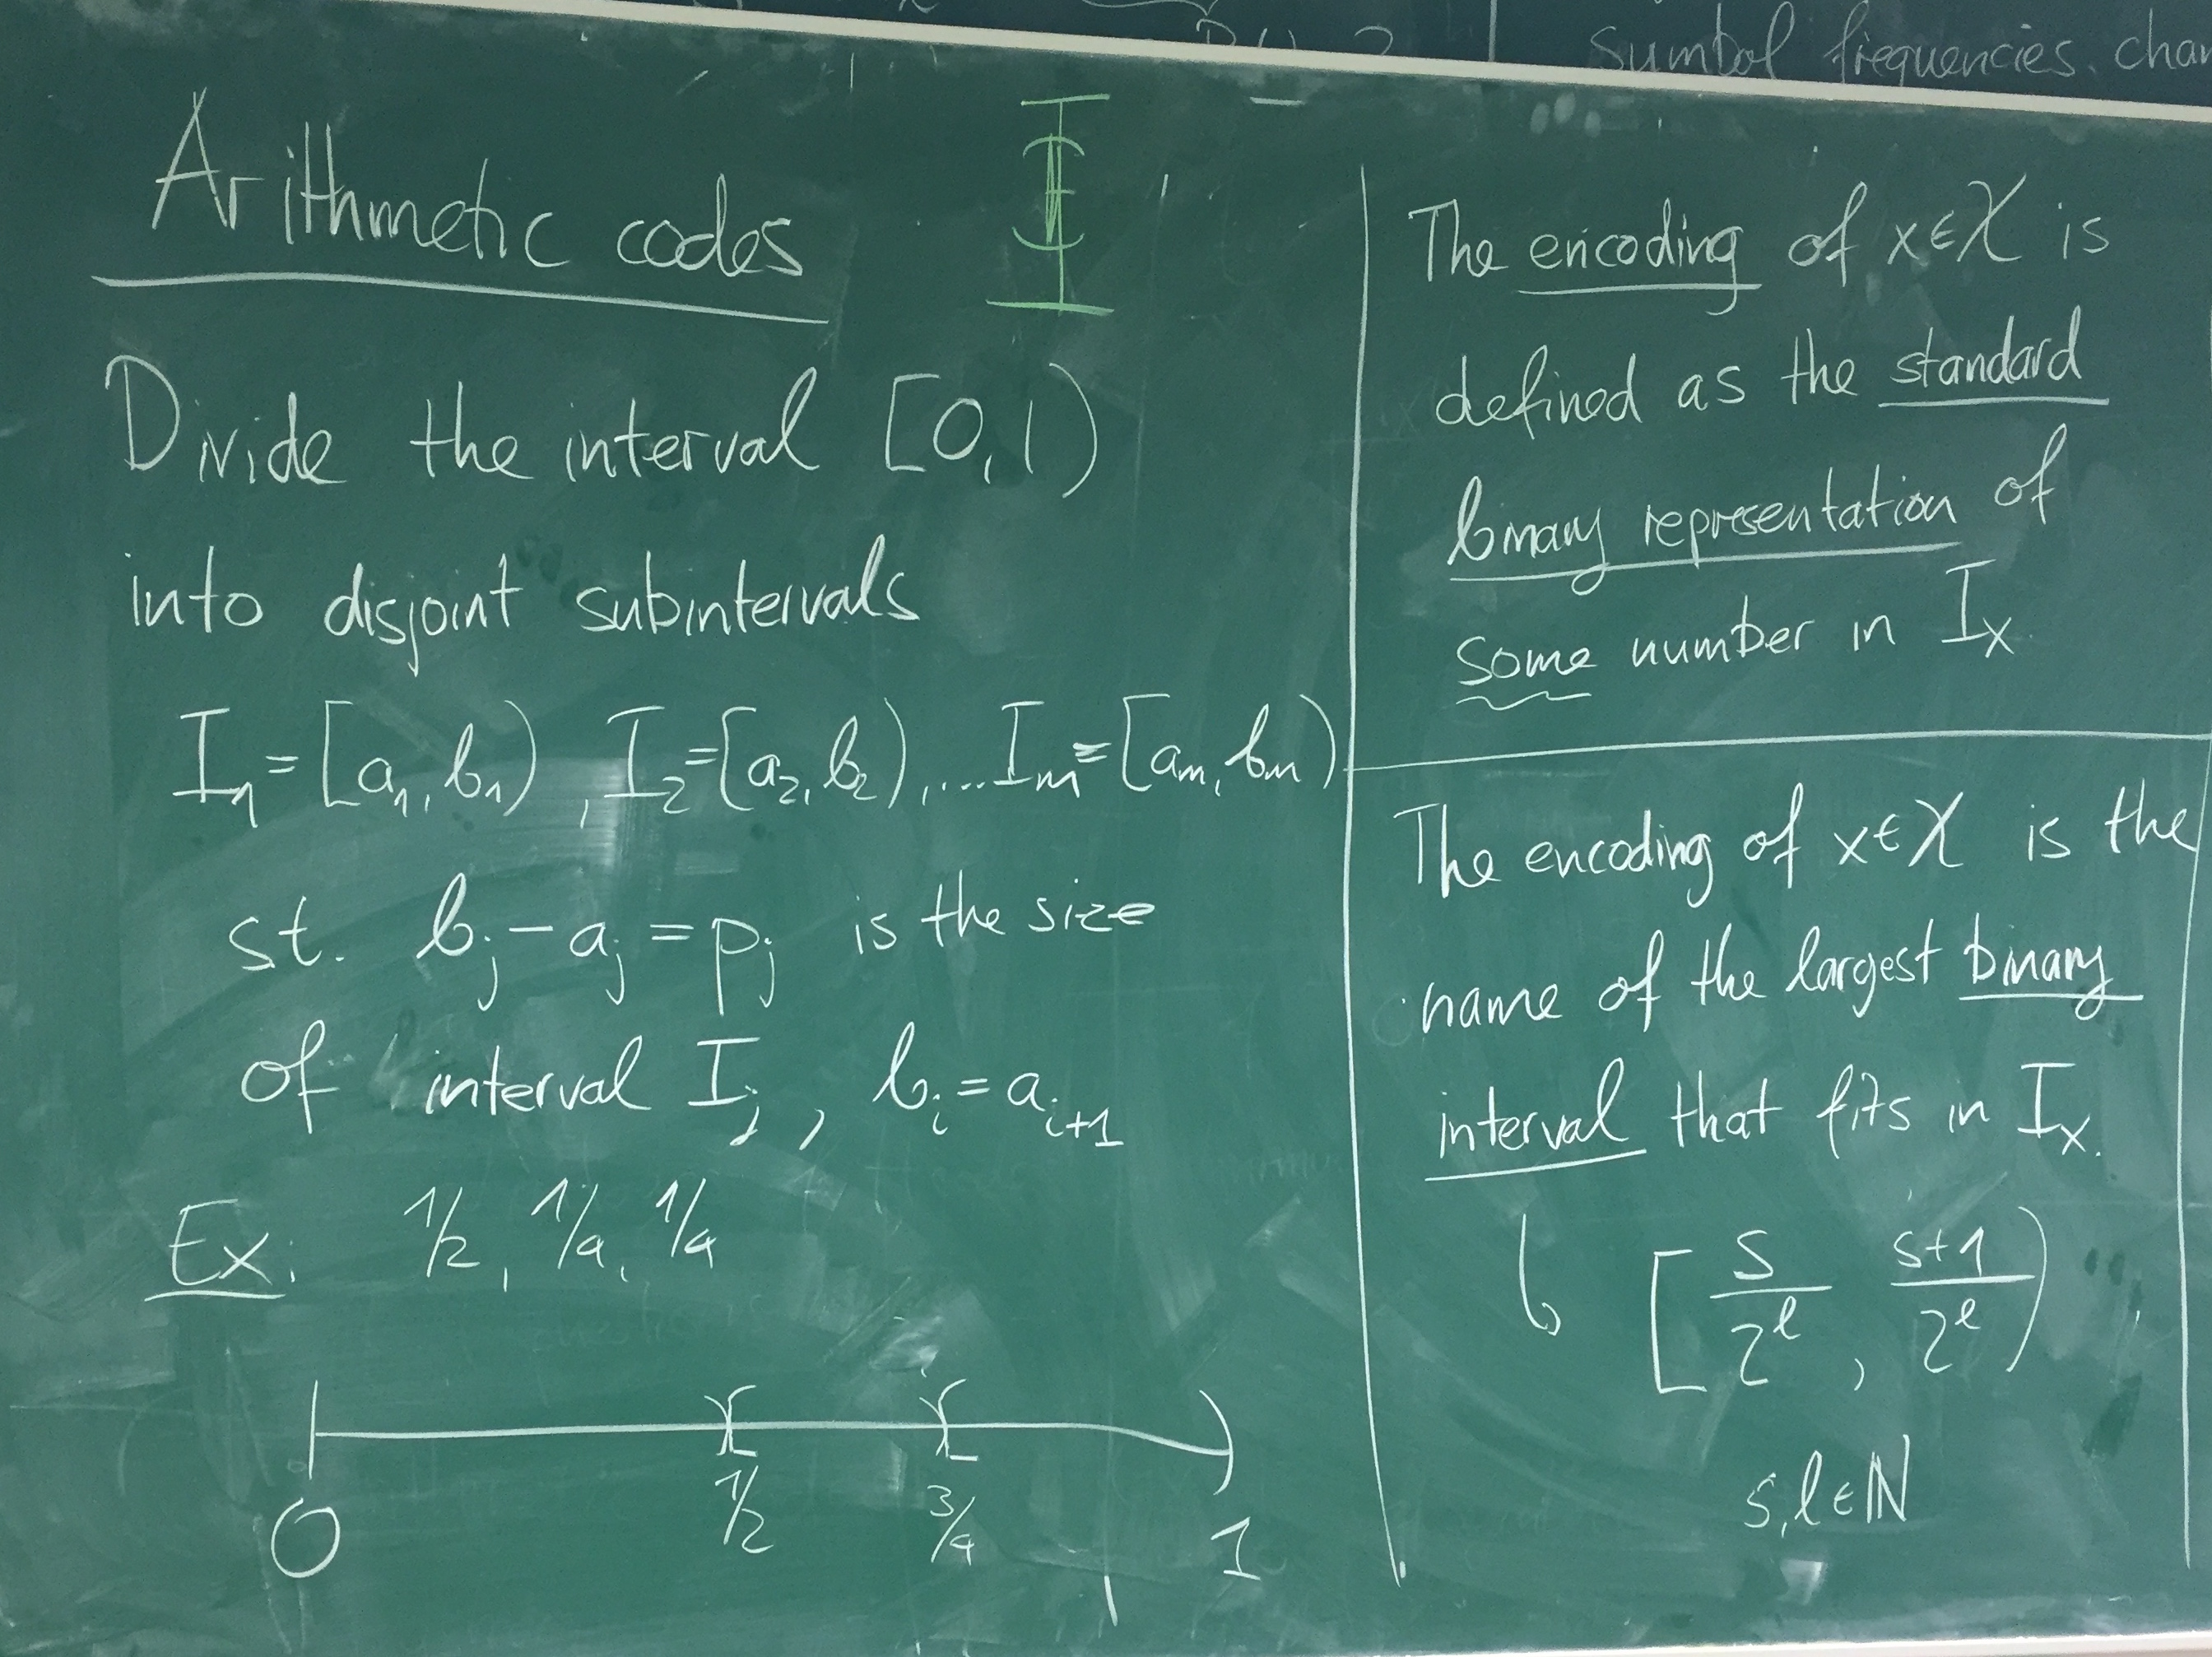 Sumbol frequencies
Arithmetic codes
Divide the interval [0,1)
into disjoint subintervals
I₁=[a₁,b₁), I₂=[a₂,b₂),...Iₘ=[aₘ,bₘ)
st. bⱼ-aⱼ=pⱼ is the size
of interval Iⱼ, bᵢ=aᵢ₊₁
Ex: 1/2, 1/4, 1/4
0 1/2 3/4 1
The encoding of x∈X is
defined as the standard
binary representation of
some number in Iₓ
The encoding of x∈X is the
name of the largest binary
interval that fits in Iₓ.
[s/2^l, s+1/2^l)
s,l∈ℕ